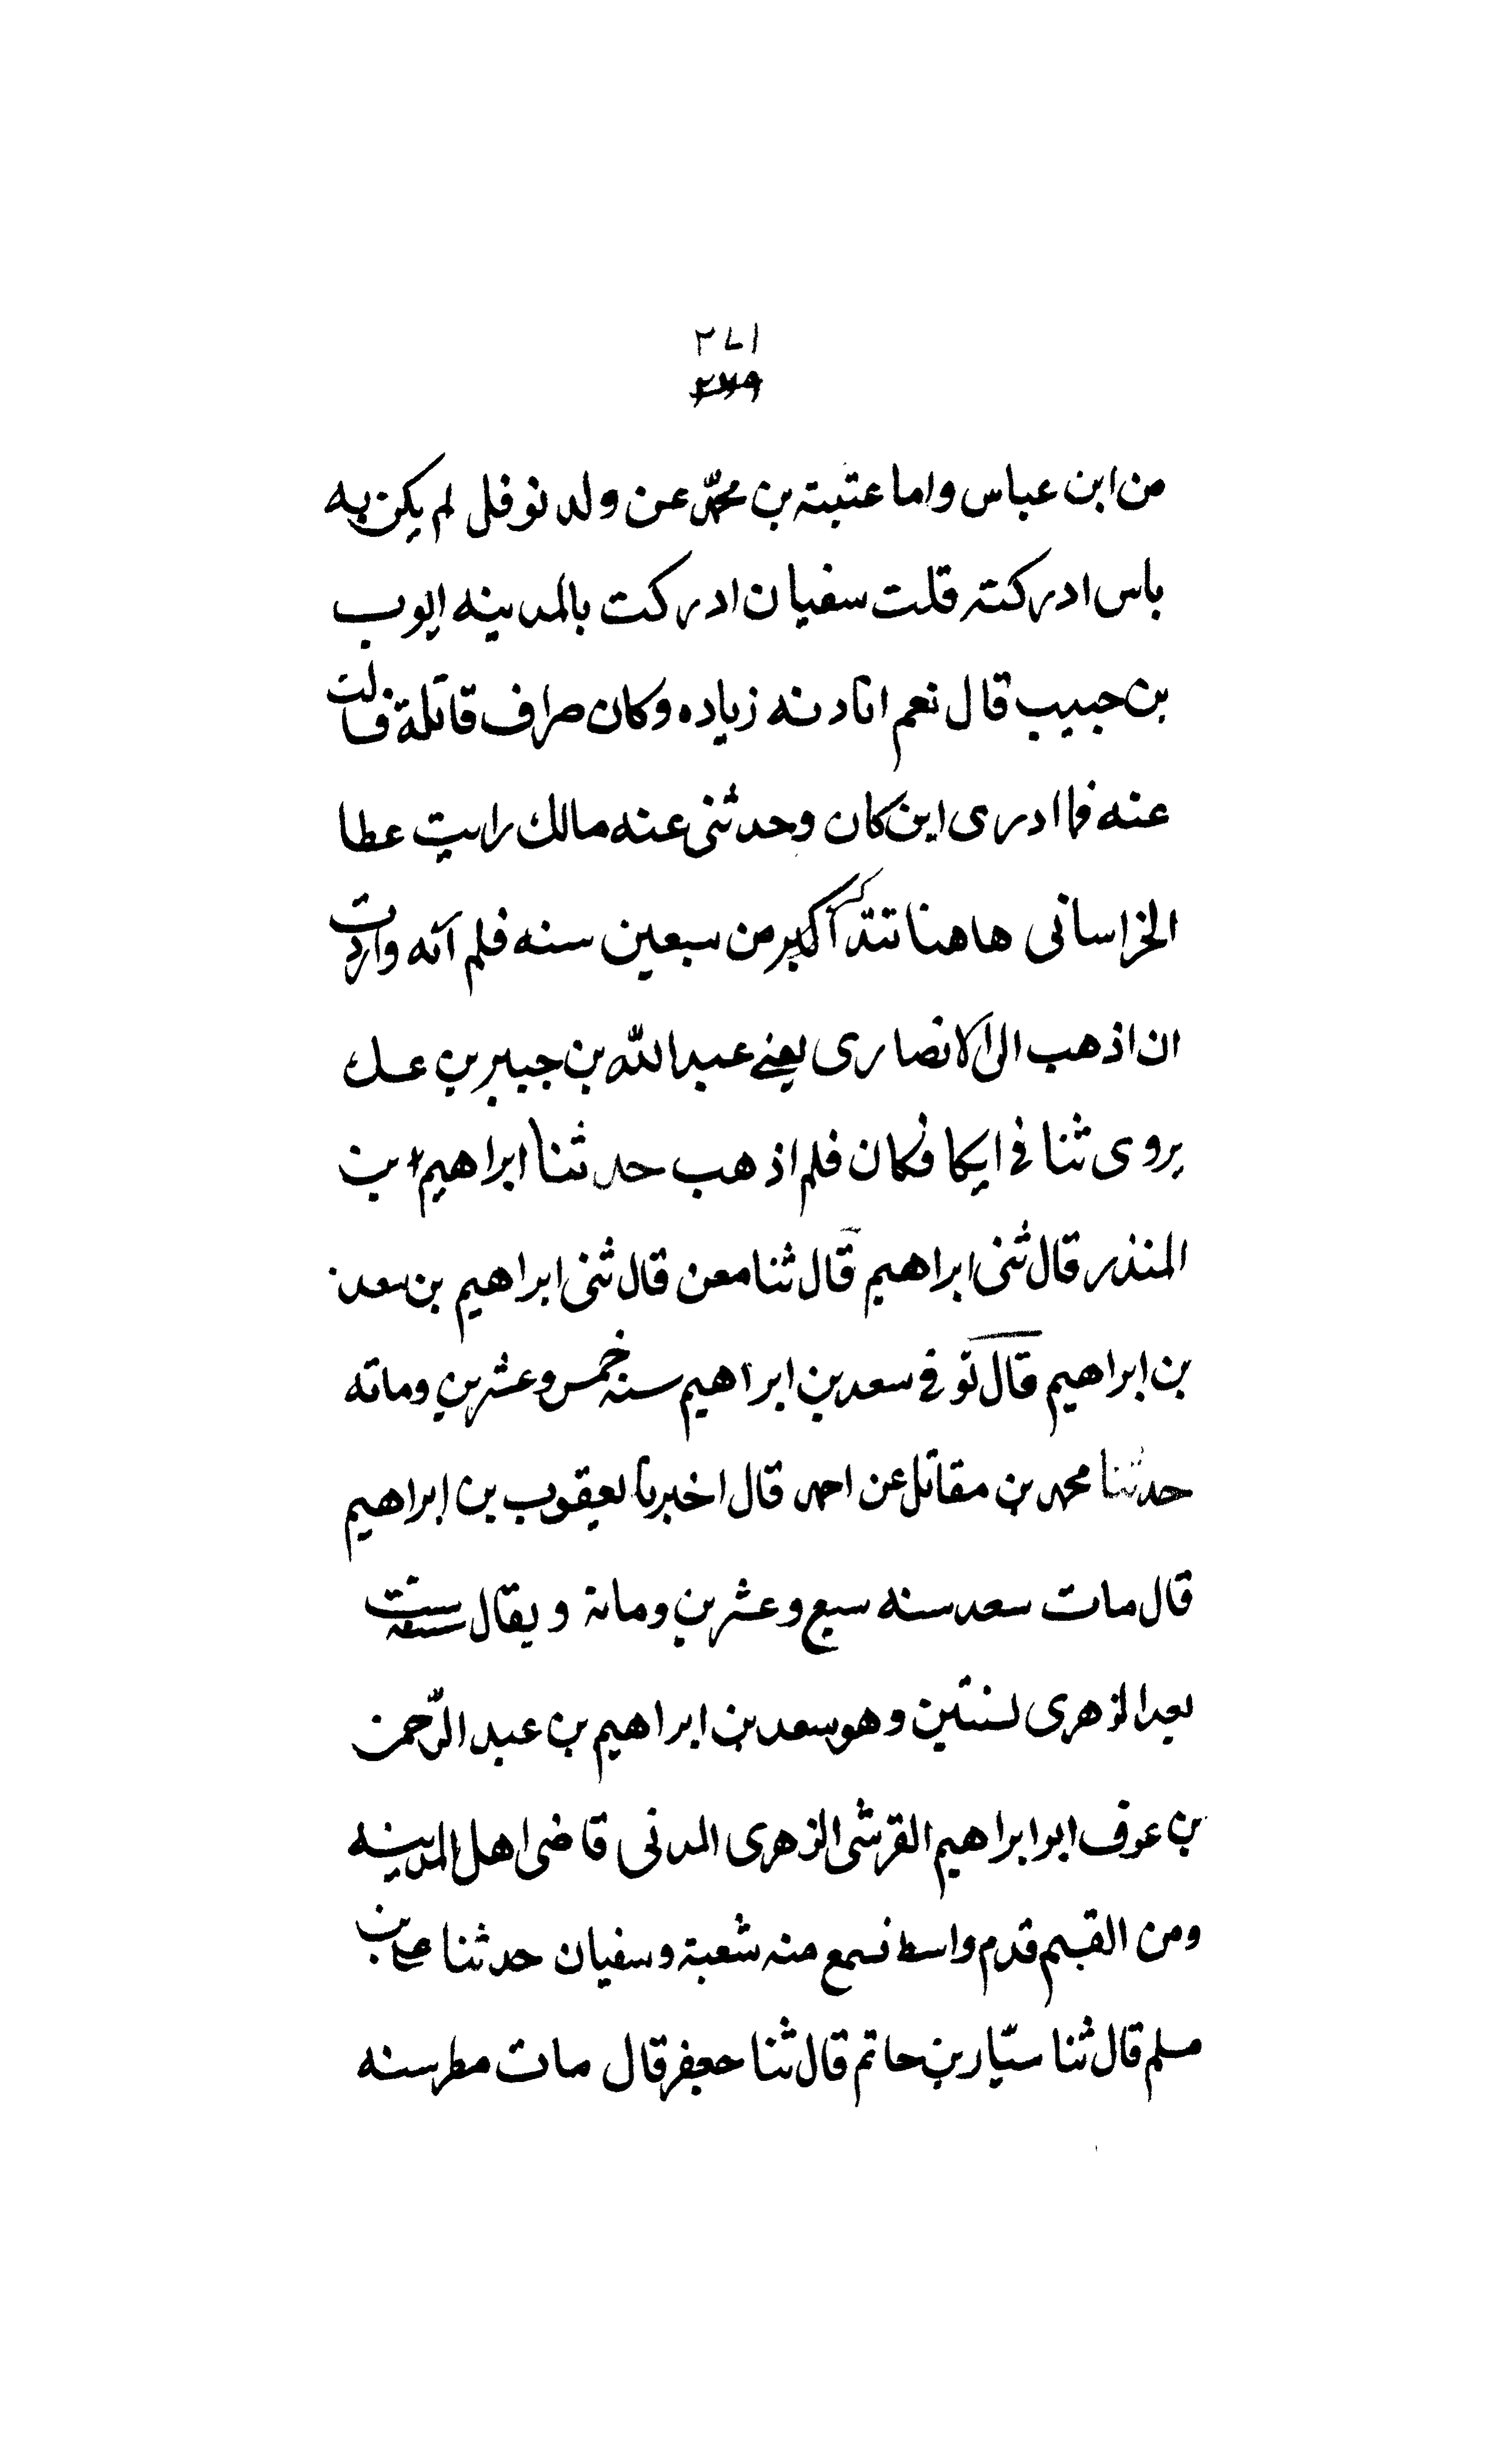 ٢٧١
من ابن عباس واما عتبة بن محمّد عن ولد نوفل لم يكن به
باس ادركته قلت سفيان ادركت بالمدينه ايوب
بن حبيب قال نعم انا دنه زياده وكان صراف قاتلة فالت
عنه فما ادرى اين كان وحدثنى عنه مالك رايت عطا
الخراسانى هاهنا اكبر من سبعين سنه فلم آته واردت
ان اذهب الى الانصارى يعنى عبد الله بن جبير بن عـك
يروى ثنا فى ايكا فكان فلم اذهب حدثنا ابراهيم بن
المنذر قال ثنى ابراهيم قال ثنا معن قال ثنى ابراهيم بن سعد
بن ابراهيم قال توفى سعد بن ابراهيم سنه خمس وعشرين ومائه
حدثنا محمد بن مقاتل عن احمد قال اخبرنا يعقوب بن ابراهيم
قال مات سعد سنه سبع وعشرين ومائة ويقال سنت
بعد الزهرى لسنتين وهو سعد بن ابراهيم بن عبد الرّحمن
بن عوف ابو ابراهيم القرشى الزهرى المدنى قاضى اهل المدينه
ومن القسم قدم واسط فسمع منه شعبة وسفيان حدثنا على بن
مسلم قال ثنا سيّار بن حاتم قال ثنا جعفر قال مات مطر سنه